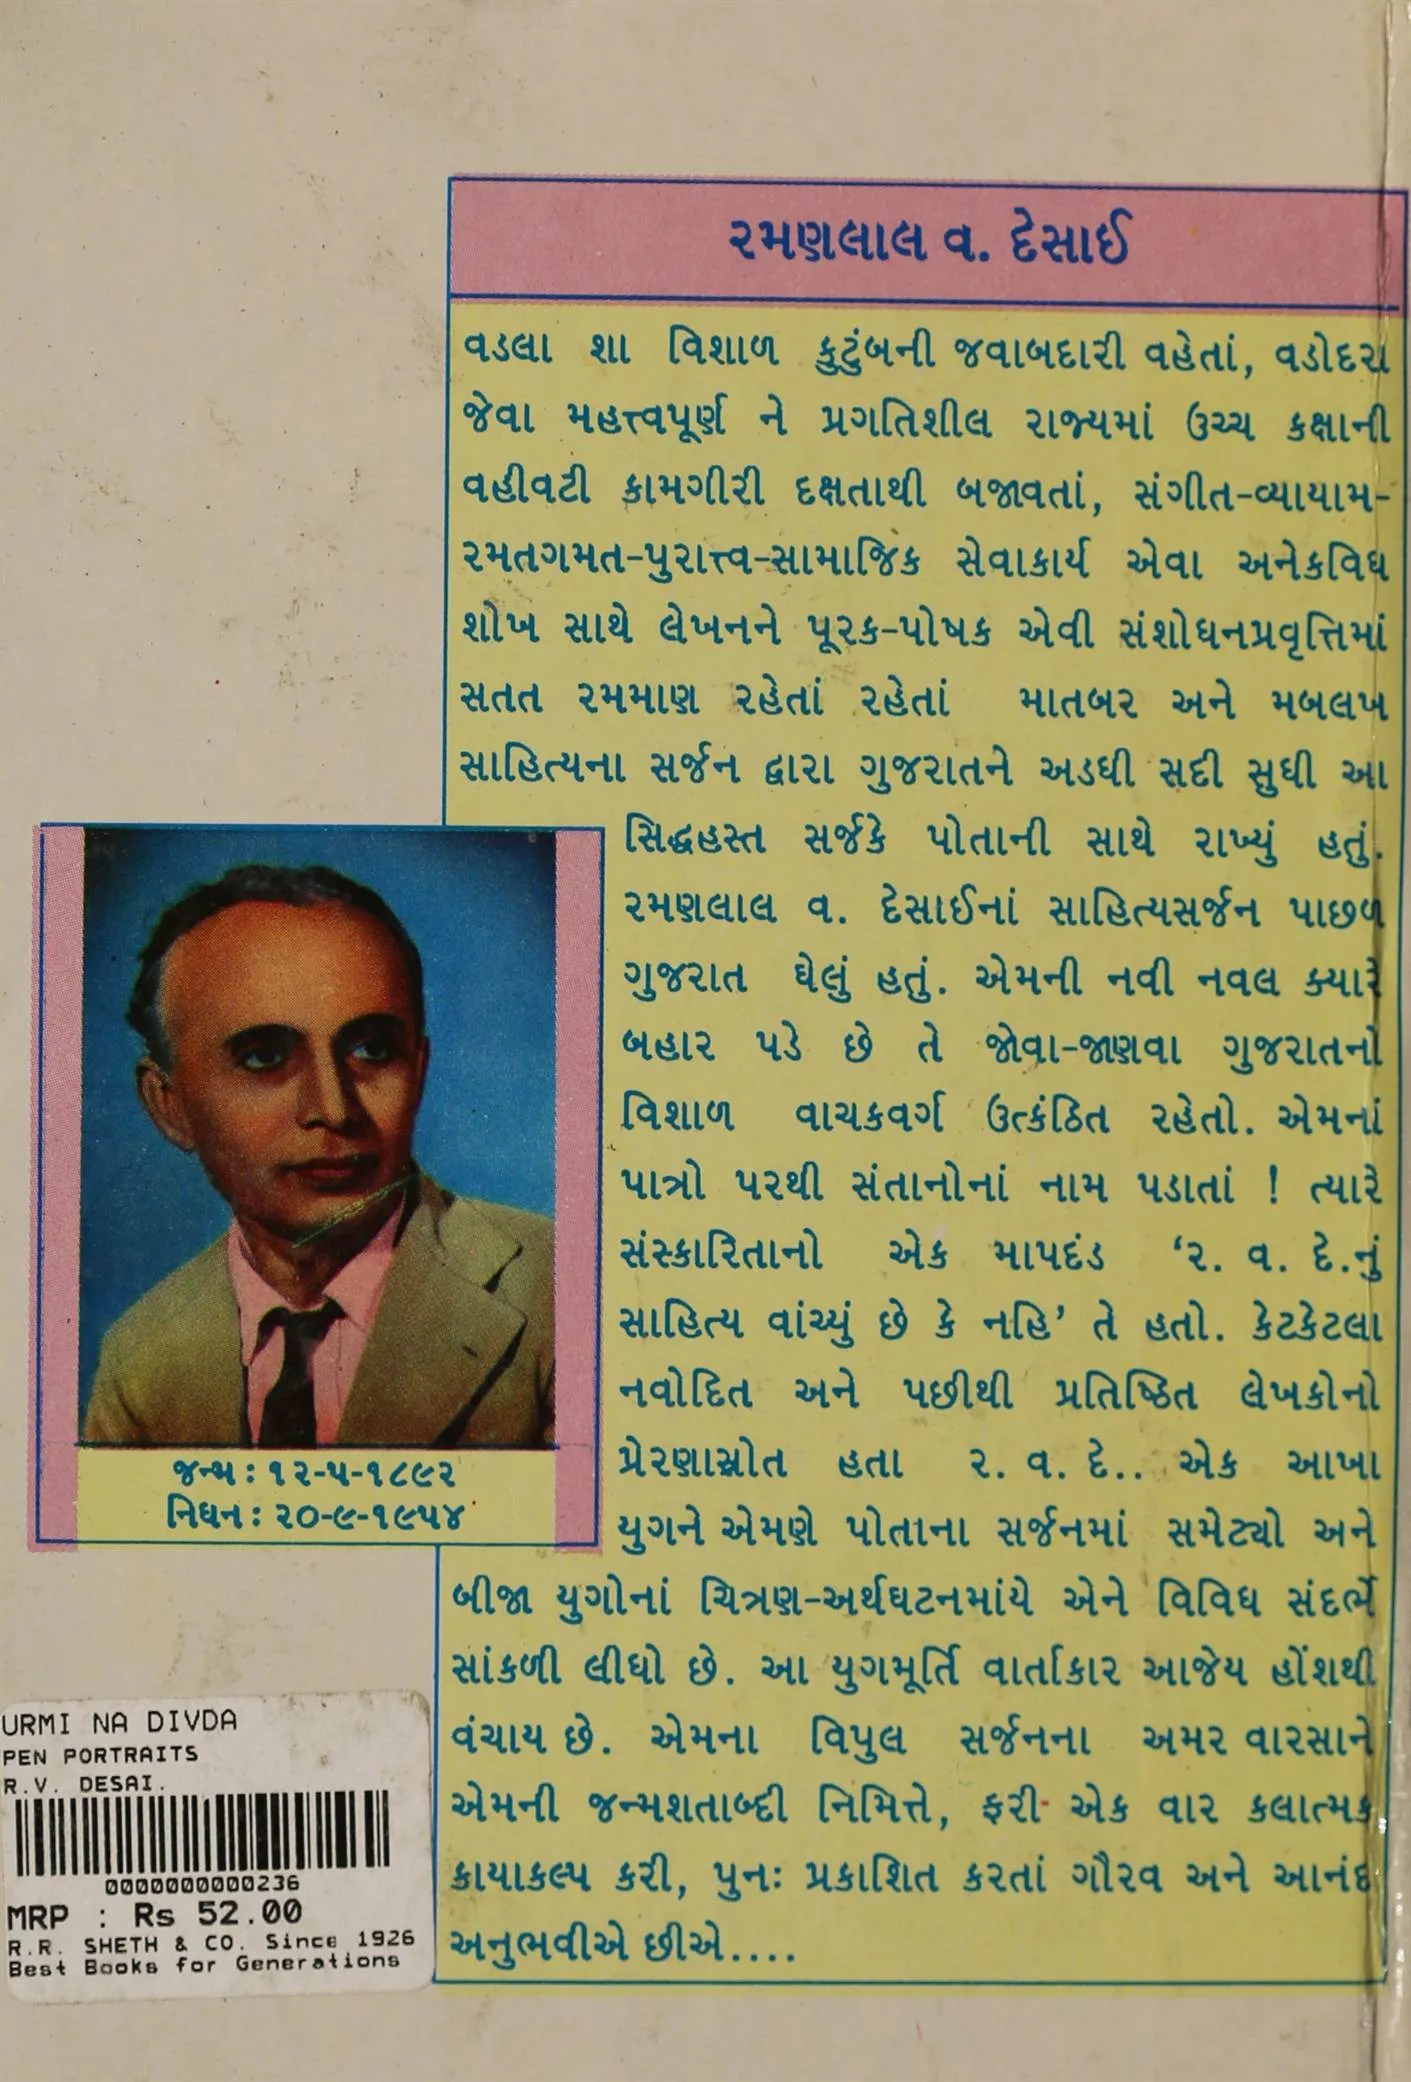 રમણલાલ વ. દેસાઈ
વડલા શા વિશાળ કુટુંબની જવાબદારી વહેતાં, વડોદરા
જેવા મહત્ત્વપૂર્ણ ને પ્રગતિશીલ રાજ્યમાં ઉચ્ચ કક્ષાની
વહીવટી કામગીરી દક્ષતાથી બજાવતાં, સંગીત-વ્યાયામ-
રમતગમત-પુરાત્ત્વ-સામાજિક સેવાકાર્ય એવા અનેકવિધ
શોખ સાથે લેખનને પૂરક-પોષક એવી સંશોધનપ્રવૃત્તિમાં
સતત રમમાણ રહેતાં રહેતાં માતબર અને મબલખ
સાહિત્યના સર્જન દ્વારા ગુજરાતને અડધી સદી સુધી આ
સિદ્ધહસ્ત સર્જકે પોતાની સાથે રાખ્યું હતું.
રમણલાલ વ. દેસાઈનાં સાહિત્યસર્જન પાછળ
ગુજરાત ઘેલું હતું. એમની નવી નવલ ક્યારે
બહાર પડે છે તે જોવા-જાણવા ગુજરાતનો
વિશાળ વાચકવર્ગ ઉત્કંઠિત રહેતો. એમનાં
પાત્રો પરથી સંતાનોનાં નામ પડાતાં ! ત્યારે
સંસ્કારિતાનો એક માપદંડ ‘ર. વ. દે.નું
સાહિત્ય વાંચ્યું છે કે નહિ’ તે હતો. કેટકેટલા
નવોદિત અને પછીથી પ્રતિષ્ઠિત લેખકોનો
પ્રેરણાસ્રોત હતા ર. વ. દે.. એક આખા
યુગને એમણે પોતાના સર્જનમાં સમેટ્યો અને
બીજા યુગોનાં ચિત્રણ-અર્થઘટનમાંયે એને વિવિધ સંદર્ભે
સાંકળી લીધો છે. આ યુગમૂર્તિ વાર્તાકાર આજેય હોંશથી
વંચાય છે. એમના વિપુલ સર્જનના અમર વારસાને
એમની જન્મશતાબ્દી નિમિત્તે, ફરી એક વાર કલાત્મક
કાયાકલ્પ કરી, પુનઃ પ્રકાશિત કરતાં ગૌરવ અને આનંદ
અનુભવીએ છીએ....
જન્મ : ૧૨-૫-૧૮૯૨
નિધન : ૨૦-૯-૧૯૫૪
URMI NA DIVDA
PEN PORTRAITS
R.V. DESAI.
0000000000236
MRP : Rs 52.00
R.R. SHETH & CO. Since 1926
Best Books for Generations